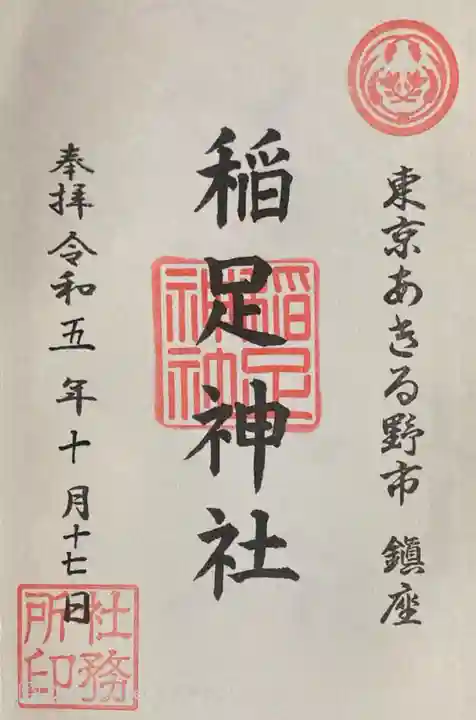 東京あきる野市 鎮座
稲足神社
奉拝 令和五年十月十七日
社務
所印